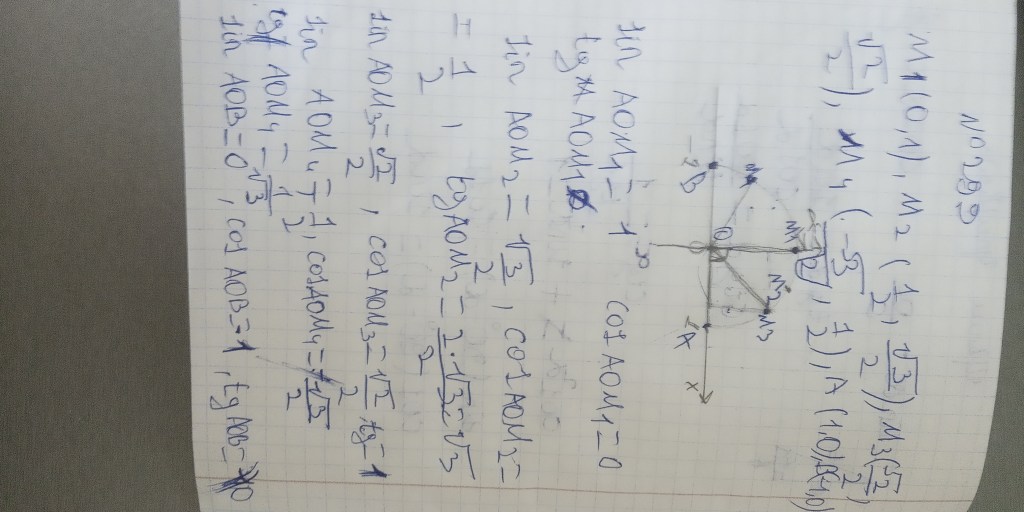 N 0289
M1(0,1), M2(1/2, √3/2), M3(√2/2,
√2/2), M4(-√3/2, 1/2), A(1,0), B(-1,0)
M1
M2
M3
-1 B O A x
sin AOM1 = 1 cos AOM1 = 0
tg AOM1
sin AOM2 = √3/2, cos AOM2 =
= 1/2, tg AOM2 = 2·√3/2 = √3
sin AOM3 = √2/2, cos AOM3 = √2/2, tg = 1
sin AOM4 = 1/2, cos AOM4 = √3/2
tg AOM4 =
sin AOB = 0, cos AOB = -1, tg AOB = 0